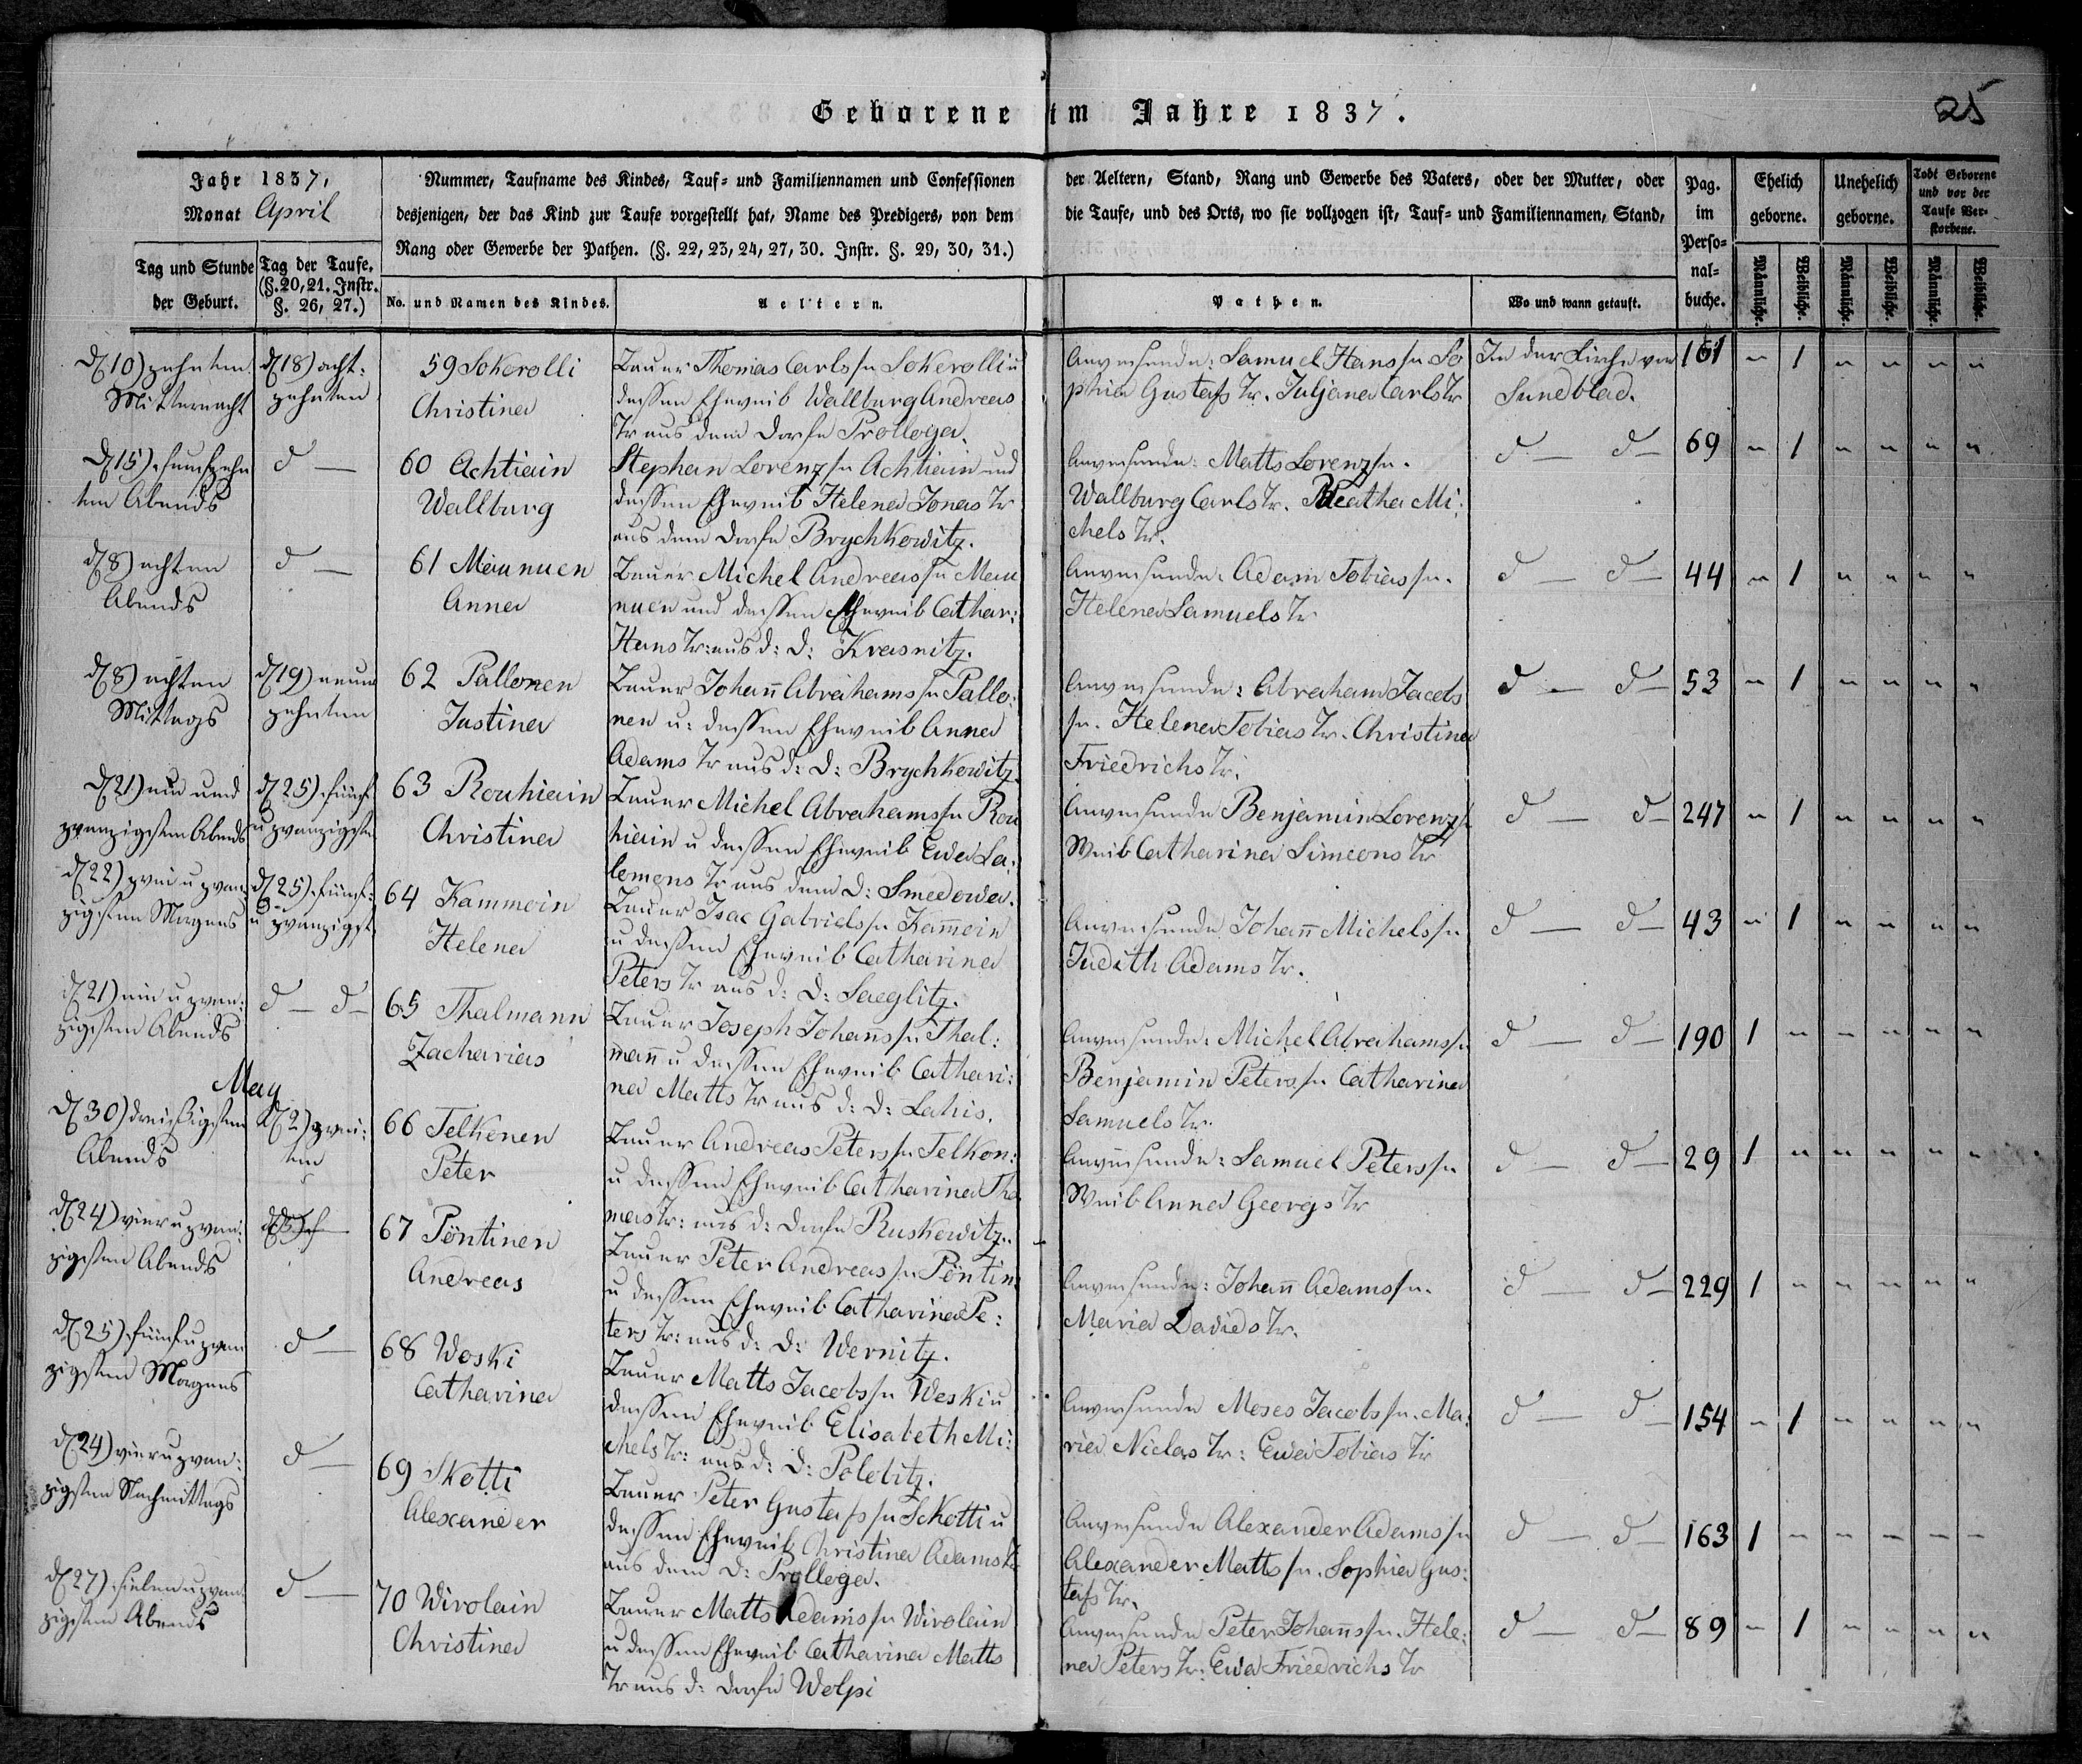 Geborene im Jahre 1837.
25
Jahr 1837,
Monat April
Nummer, Taufname des Kindes, Tauf- und Familiennamen und Confessionen der Aeltern, Stand, Rang und Gewerbe des Vaters, oder der Mutter, oder
desjenigen, der das Kind zur Taufe vorgestellt hat, Name des Predigers, von dem die Taufe, und des Orts, wo sie vollzogen ist, Tauf- und Familiennamen, Stand,
Rang oder Gewerbe der Pathen. (§. 22, 23, 24, 27, 30. Instr. §. 29, 30, 31.)
Tag und Stunde
der Geburt.
Tag der Taufe.
(§. 20, 21. Instr.
§. 26, 27.)
No. und Namen des Kindes.
Aeltern.
Pathen.
Wo und wann getauft.
Pag.
im
Perso-
nal-
buche.
Ehelich
geborne.
Unehelich
geborne.
Todt Geborene
und vor der
Taufe Ver-
storbene.
Männliche.
Weibliche.
Männliche.
Weibliche.
Männliche.
Weibliche.
d 10) zehnten
Mitternacht
d 18) acht:
zehnten
59 Sokorolli
Christina
Bauer Thomas Carls sn Sokorolli u
dessen Eheweib Wallburg Andreas
Tr aus dem Dorfe Prolloga.
Anwesende: Samuel Hans sn So
phia Gustafs Tr. Juljana Carls Tr
In der Kirche von
Sundblad.
161 " 1 " " " "
d 15) funfzehn
ten Abends
d —
60 Achtiain
Wallburg
Stephan Lorenz sn Achtiain und
dessen Eheweib Helena Jonas Tr
aus dem Dorfe Brychkowitz.
Anwesende: Matts Lorenz sn.
Wallburg Carls Tr. Agatha Mi:
chels Tr.
d — d —
69 " 1 " " " "
d 8) achten
Abends
d —
61 Maunuen
Anna
Bauer Michel Andreas sn Mau
nuen und dessen Eheweib Cathar:
Hans Tr: aus d: D: Krasnitz.
Anwesende: Adam Tobias sn.
Helena Samuels Tr
d — d —
44 " 1 " " " "
d 8) achten
Mittags
d 19) neun
zehnten
62 Pallonen
Justina
Bauer Johann Abrahams sn Pallo:
nen u: dessen Eheweib Anna
Adams Tr aus d: D: Brychkowitz.
Anwesende: Abraham Jacobs
sn. Helena Tobias Tr. Christina
Friedrichs Tr.
d — d —
53 " 1 " " " "
d 21) ein und
zwanzigsten Abends
d 25) fünf
u zwanzigsten
63 Rouhiain
Christina
Bauer Michel Abrahams sn Rou
hiain u dessen Eheweib Ewa Sa:
lomons Tr aus dem D: Smedowa.
Anwesende Benjamin Lorenz s
Weib Catharina Simeons Tr
d — d —
247 " 1 " " " "
d 22) zwei u zwan
zigsten Morgens
d 25) fünf:
u zwanzigst
64 Kammoin
Helena
Bauer Isac Gabriels sn Kamoin
u dessen Eheweib Catharina
Peters Tr aus d: D: Saeglitz.
Anwesende Johann Michels sn
Judith Adams Tr.
d — d —
43 " 1 " " " "
d 21) ein u zwan:
zigsten Abends
d — d —
65 Thalmann
Zacharias
Bauer Joseph Johanns sn Thal:
mann u dessen Eheweib Cathari:
na Matts Tr aus d: D: Lahis.
Anwesende: Michel Abrahams sn
Benjamin Peters sn Catharina
Samuels Tr.
d — d —
190 1 " " " " "
May
d 30) dreißigsten
Abends
d 2) zwei:
ten
66 Telkonen
Peter
Bauer Andreas Peters sn Telkon:
u dessen Eheweib Catharina Tho
mas Tr: aus d: Dorfe Ruskowitz.
Anwesende: Samuel Peters sn
Weib Anna Georgs Tr
d — d —
29 1 " " " " "
d 24) vier u zwan:
zigsten Abends
67 Pöntinen
Andreas
Bauer Peter Andreas sn Pöntin:
u dessen Eheweib Catharina Pe:
ters Tr: aus d: D: Wernitz.
Anwesende: Johann Adams sn.
Maria Davids Tr.
d — d —
229 1 " " " " "
d 25) fünf u zwan
zigsten Morgens
d —
68 Woski
Catharina
Bauer Matts Jacobs sn Woski u
dessen Eheweib Elisabeth Mi:
chels Tr: aus d: D: Polobitz.
Anwesende Moses Jacobs sn. Ma:
ria Niclas Tr: Ewa Tobias Tr
d — d —
154 " 1 " " " "
d 24) vier u zwan:
zigsten Nachmittags
d —
69 Skotti
Alexander
Bauer Peter Gustafs sn Skotti u
dessen Eheweib Christina Adams Tr
aus dem D: Prollega.
Anwesende Alexander Adams sn
Alexander Matts sn. Sophia Gus:
tafs Tr.
d — d —
163 1 " " " " "
d 27) sieben u zwan
zigsten Abends
d —
70 Wirolain
Christina
Bauer Matts Adams sn Wirolain
u dessen Eheweib Catharina Matts
Tr aus d: Dorfe Wolpi
Anwesende Peter Johanns sn. Hele:
na Peters Tr: Ewa Friedrichs Tr
d — d —
89 " 1 " " " "